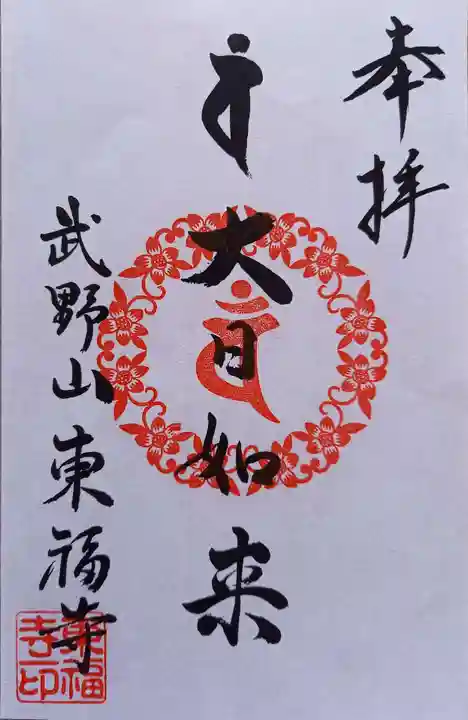 奉拝
大日如来
武野山東福寺
東福寺印